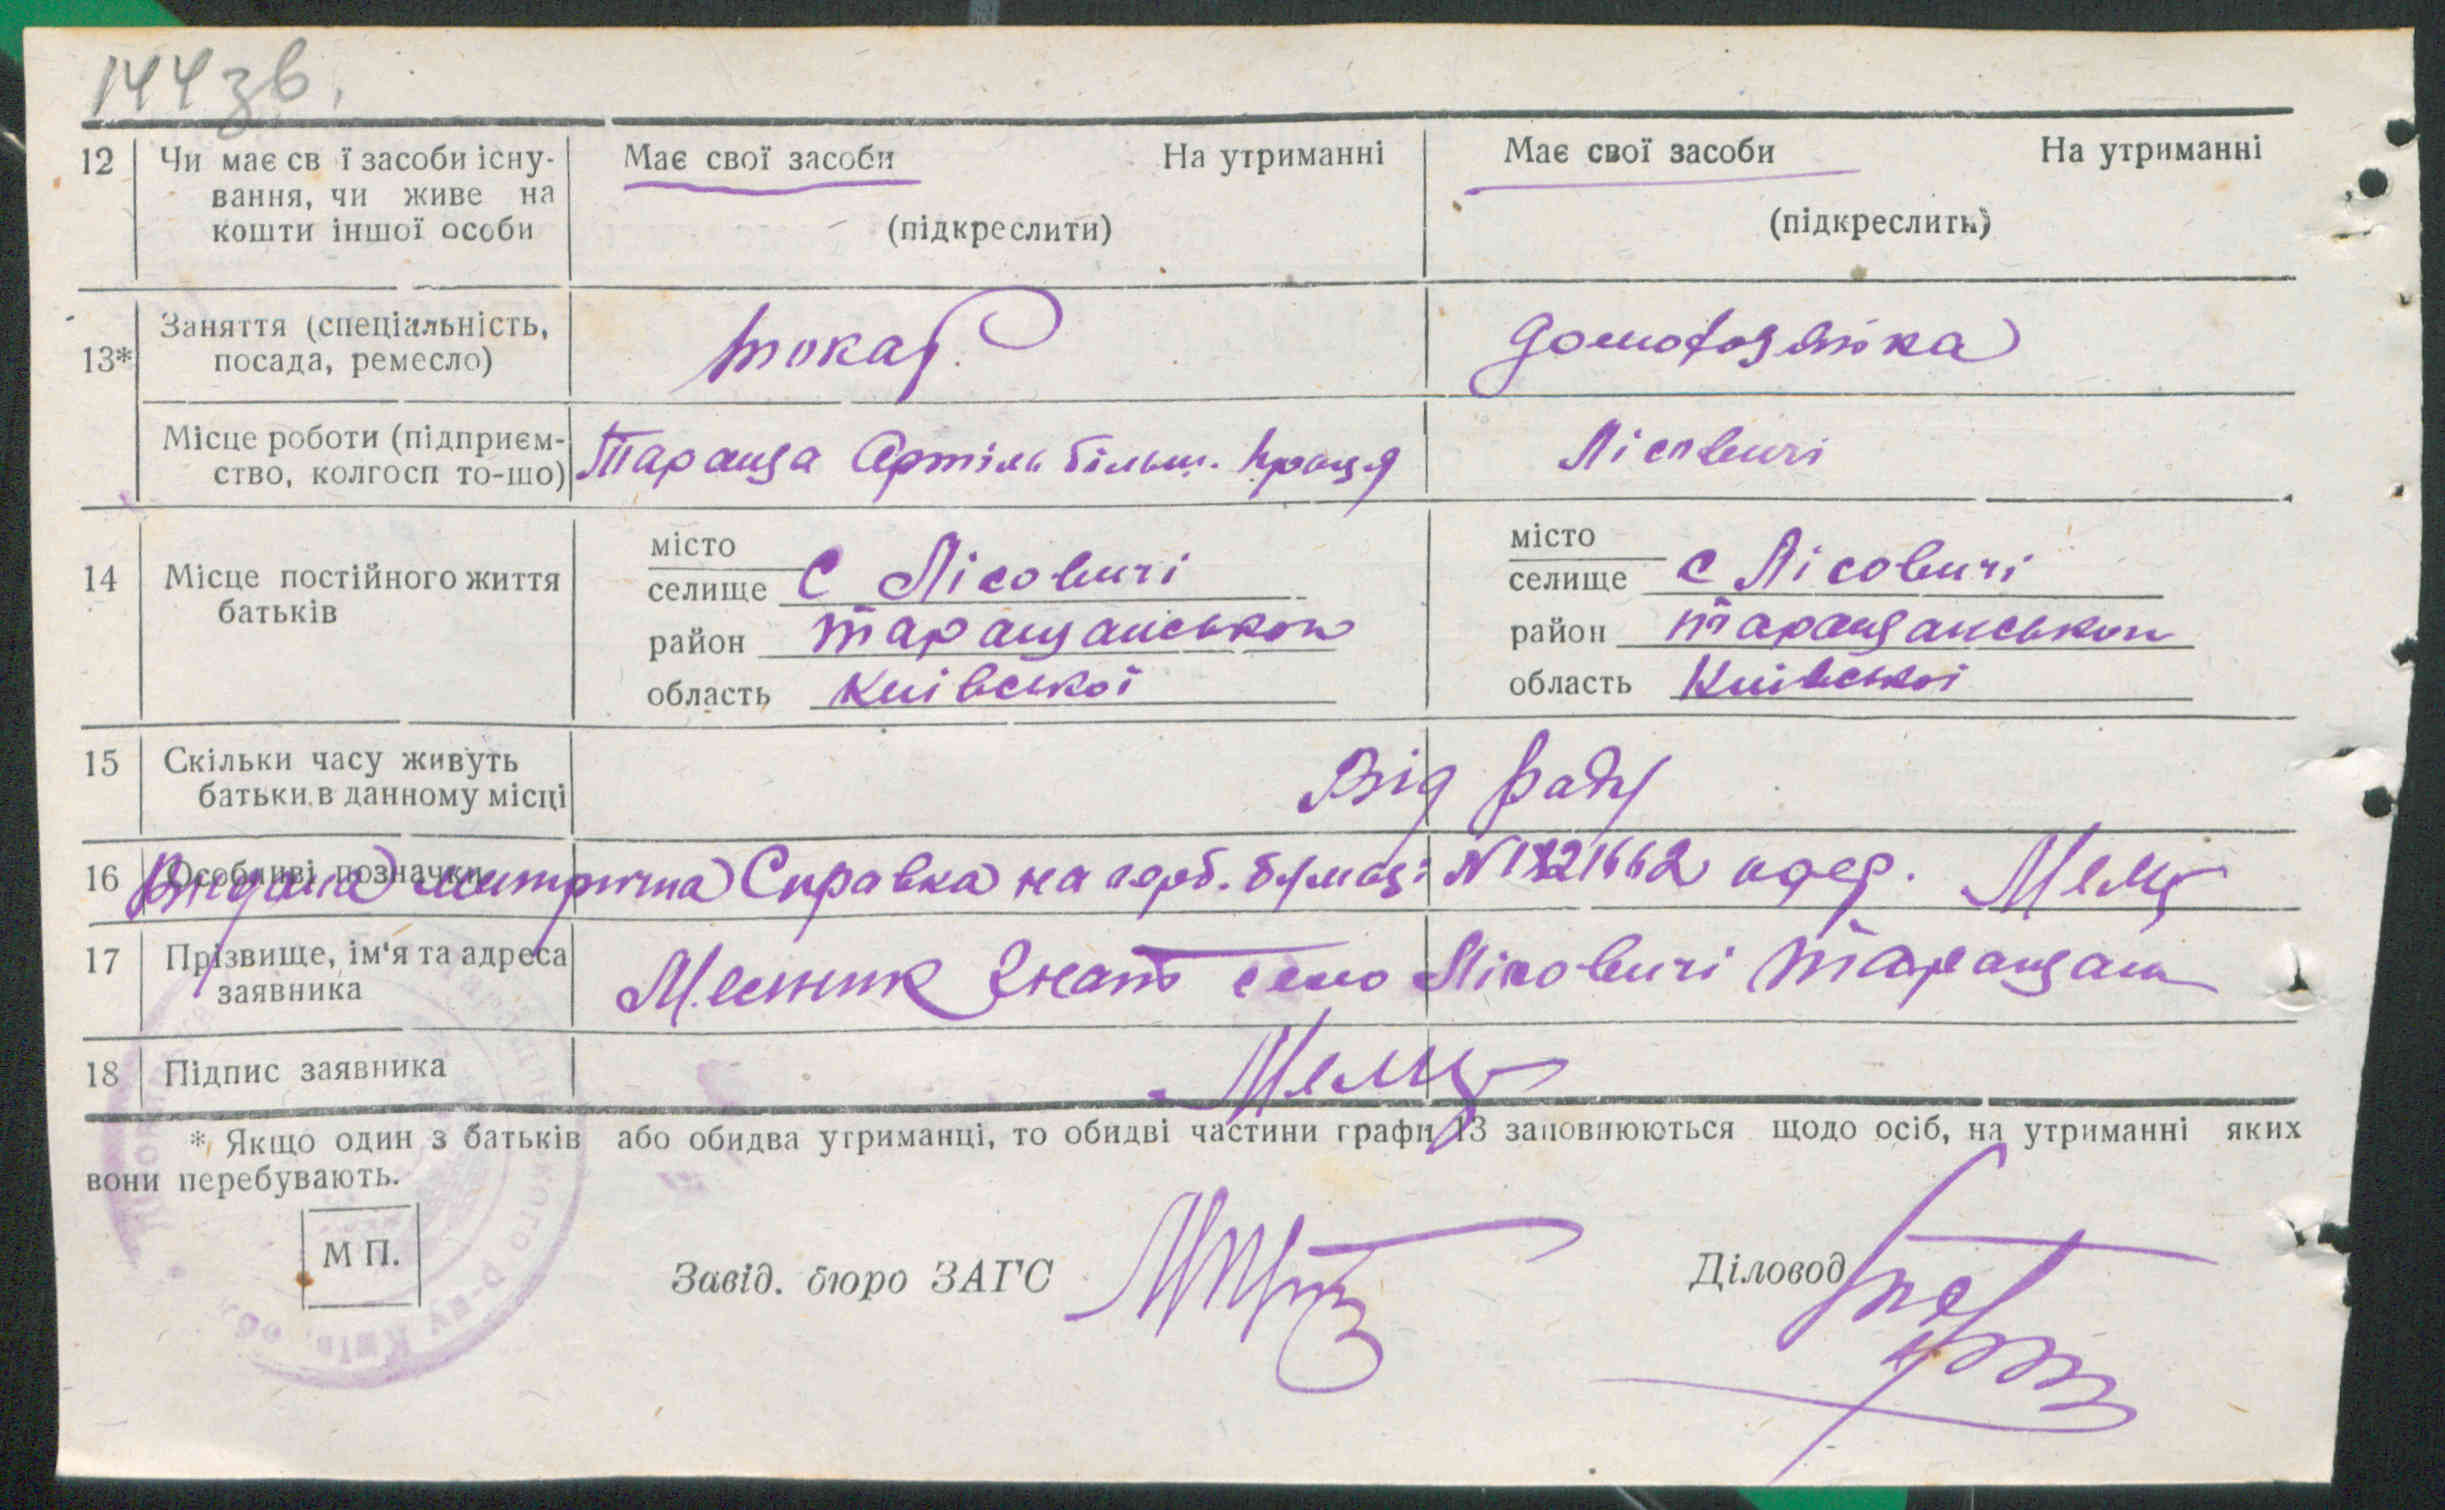 144 зв.
12 Чи має св ї засоби існу- Має свої засоби На утриманні Має свої засоби На утриманні
вання, чи живе на
кошти іншої особи (підкреслити) (підкреслить)
13* Заняття (спеціальність, токар домохозяйка
посада, ремесло)
Місце роботи (підприєм- Тараща Артіль більш. праця Лісовичі
ство, колгосп то-що)
14 Місце постійного життя місто місто
батьків селище С Лісовичі селище С Лісовичі
район Таращанського район Таращанського
область Київської область Київської
15 Скільки часу живуть Від
батьки в данному місці
16 Особливі позначки Видана метрична Справка на герб. бумазі № 1821662 одер.
17 Прізвище, ім'я та адреса Гнат село Лісовичі Таращан
заявника
18 Підпис заявника
* Якщо один з батьків або обидва утриманці, то обидві частини графи 13 заповнюються щодо осіб, на утриманні яких
вони перебувають.
М П.
Завід. бюро ЗАГС Діловод